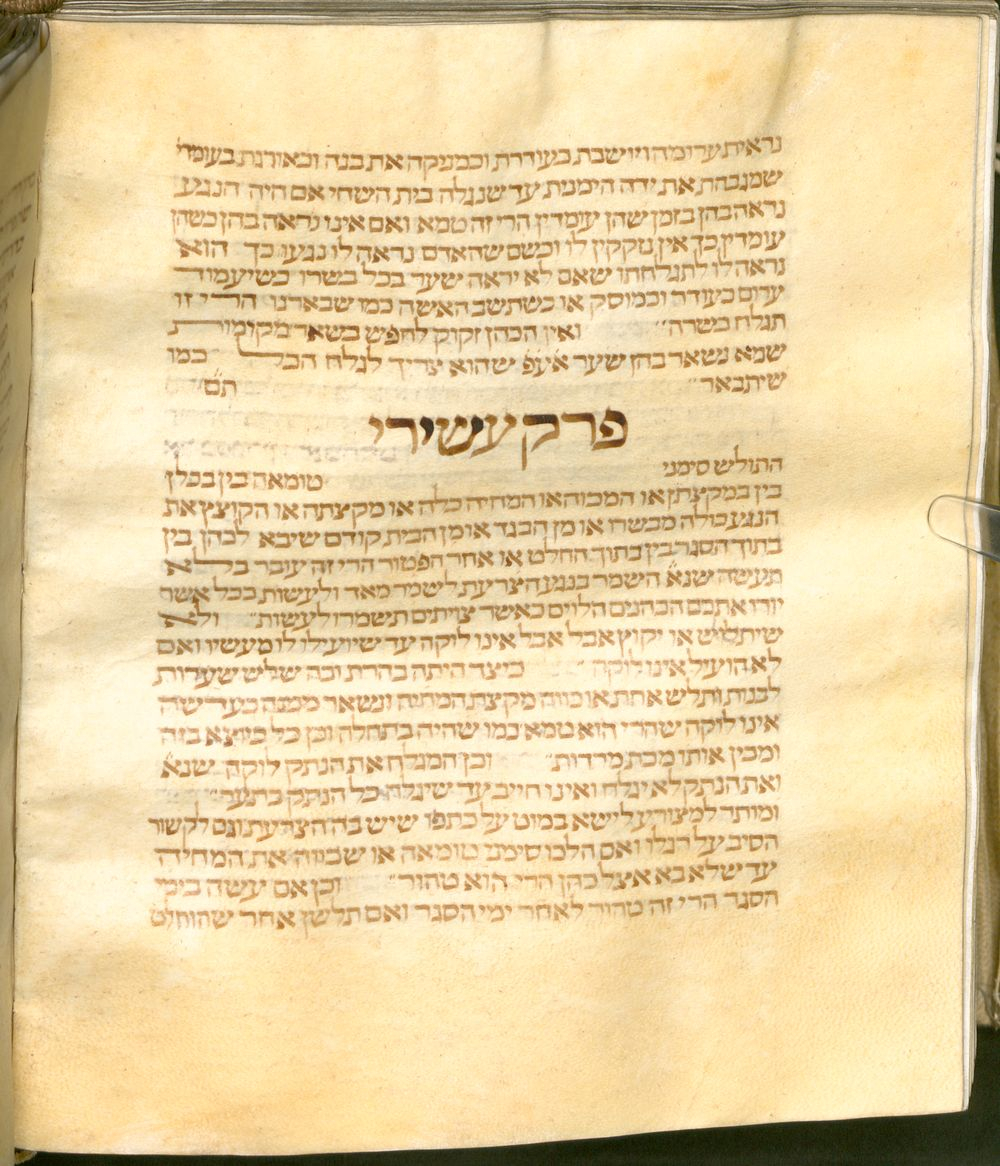 נראית ערומה ויושבת כעודרת וכמניקה את בנה וכאורגת בעומדי
שמגבהת את ידה הימנית עד שנגלה בית השחי אם היה הנגע
נראה בהן בזמן שהן עומדין הרי זה טמא ואם אינו נראה בהן כשהן
עומדין כך אין נזקקין לו וכשם שהאדם נראה לו נגעו כך הוא
נראה לו לתגלחתו שאם לא יראה שער בכל בשרו כשיעמוד
ערום כעודה וכמוסק או כשתשב האשה כמו שבארנו הרי זו
תגלח כשרה ואין הכהן זקוק לחפש בשאר מקומות
שמא נשאר בהן שער אע״פ שהוא צריך לגלח הכל כמו
שיתבאר תם
פרק עשירי
התולש סימני
טומאה בין בכלן
בין במקצתן או המכוה או המחיה כלה או מקצתה או הקוצץ את
הנגע כולה מבשרו או מן הבגד או מן הבית קודם שיבא לכהן בין
בתוך הסגר בין בתוך החלט או אחר הפטור הרי זה עובר בלא
תעשה שנ׳ השמר בנגע הצרעת לשמר מאד ולעשות בכל אשר
יורו אתכם הכהנים הלוים כאשר צויתים תשמרו לעשות ולא
שיתלוש או יקוץ אבל אבל אינו לוקה עד שיועילו לו מעשיו ואם
לא הועיל אינו לוקה כיצד היתה בהרת ובה שלש שערות
לבנות ותלש אחת או כווה מקצת המחיה ונשאר ממנה כעדשה
אינו לוקה שהרי הוא טמא כמו שהיה בתחלה וכן כל כיוצא בזה
ומכין אותו מכת מרדות וכן המגלח את הנתק לוקה שנ׳
ואת הנתק לא יגלח ואינו חייב עד שיגלח כל הנתק בתער
ומותר למצורע לישא במוט על כתפו שיש בה הצרעת וגם לקשור
הסיב על רגלו ואם הלכו סימני טומאה או שכווה את המחיה
עד שלא בא אצל כהן הרי הוא טהור וכן אם עשה בימי
הסגר הרי זה טהור לאחר ימי הסגר ואם תלשן אחר שהוחלט